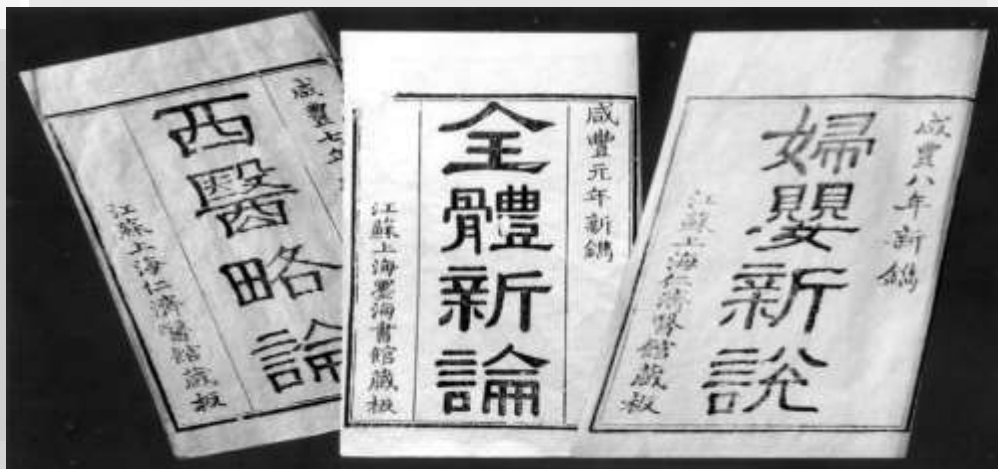 咸豐七年
西醫略論
江蘇上海仁濟醫館藏板
咸豐元年新鐫
全體新論
江蘇上海墨海書館藏板
咸豐八年新鐫
婦嬰新說
江蘇上海仁濟醫館藏板